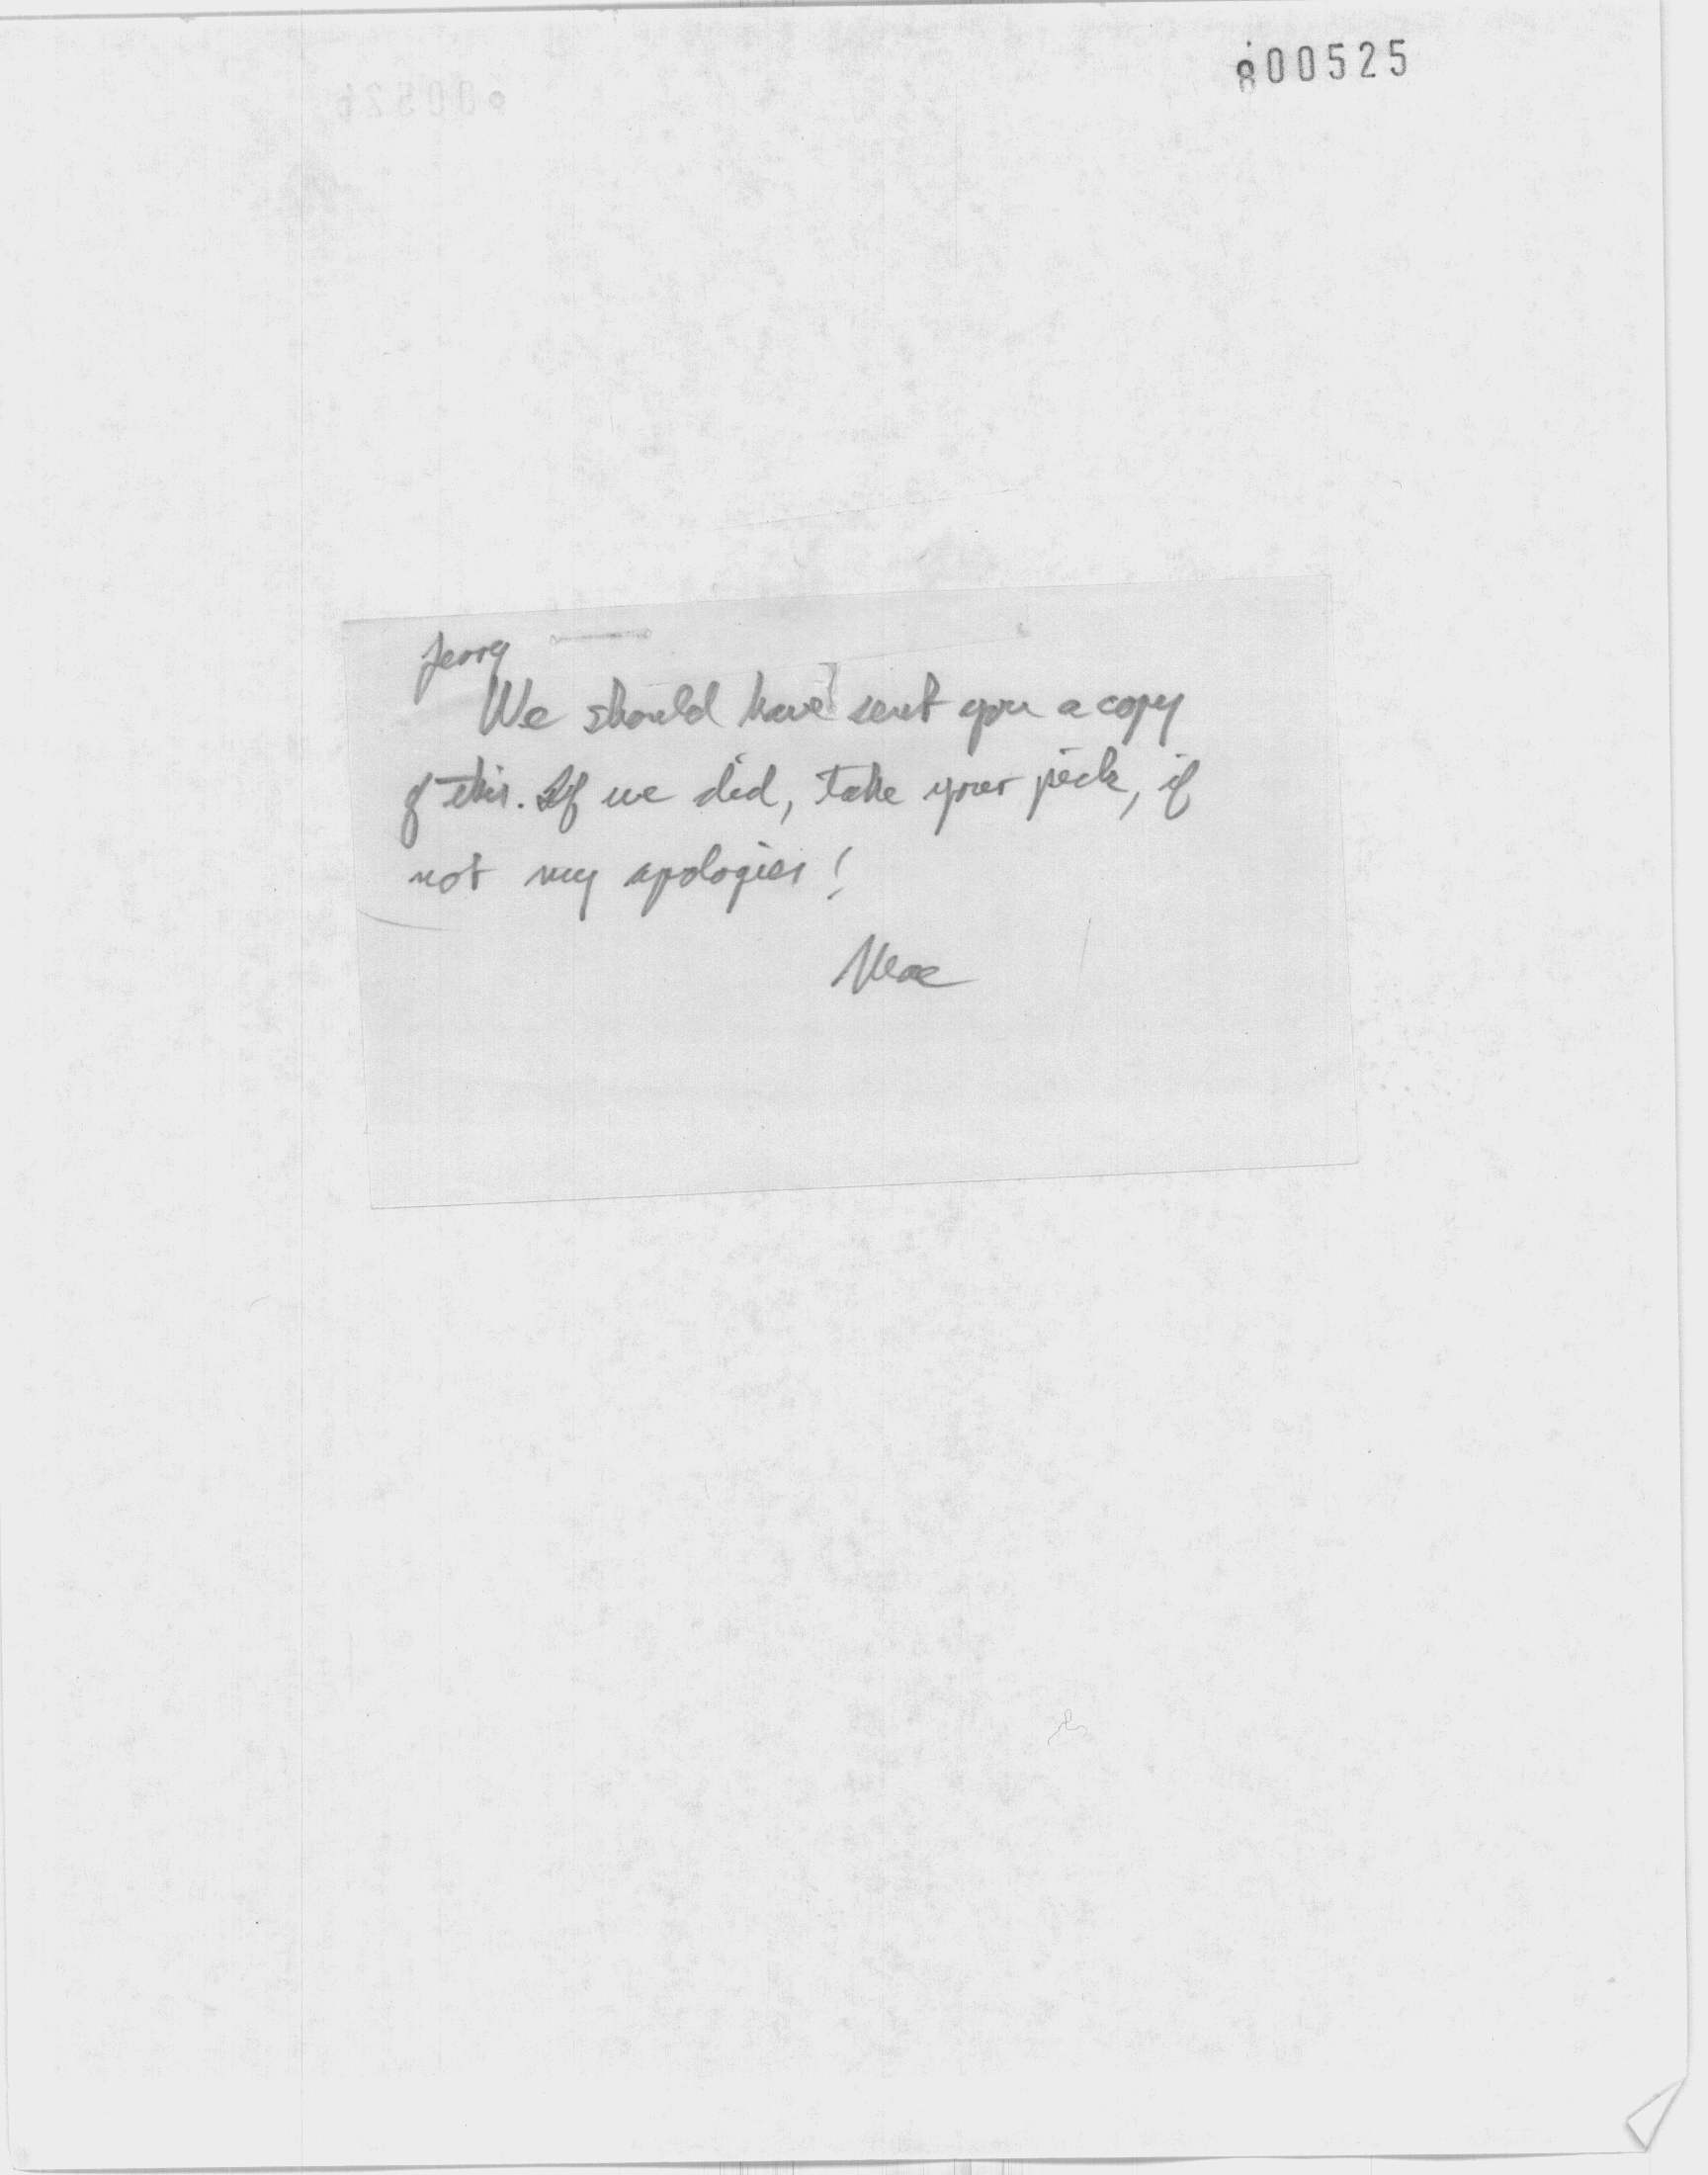 800525
Jerry
We should have sent you a copy
of this. If we did, take your pick, if
not my apologies!
Mac